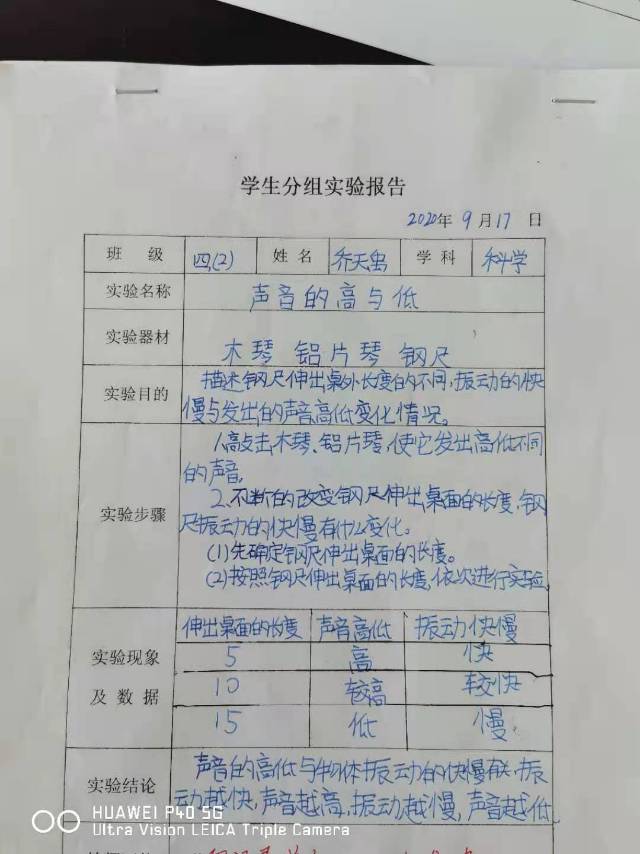 学生分组实验报告
2020年 9月17日
班 级 四(2) 姓 名 乔天 学 科 科学
实验名称 声音的高与低
实验器材 木琴 铝片琴 钢尺
实验目的 描述钢尺伸出桌外长度的不同,振动的快
慢与发出的声音高低变化情况。
1.敲击木琴、铝片琴,使它发出高低不同
的声音,
实验步骤
2.不断的改变钢尺伸出桌面的长度,钢
尺振动的快慢有什么变化。
(1)先确定钢尺伸出桌面的长度。
(2)按照钢尺伸出桌面的长度,依次进行实验
实验现象及数据
伸出桌面的长度 声音高低 振动快慢
5 高 快
10 较高 较快
15 低 慢
实验结论 声音的高低与物体振动的快慢有关,振
动越快,声音越高,振动越慢,声音越低
HUAWEI P40 5G
Ultra Vision LEICA Triple Camera